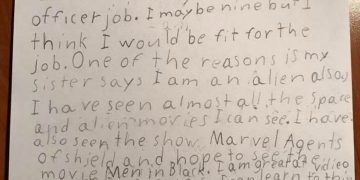 officer job. I may be nine but I
think I would be fit for the
job. One of the reasons is my
sister says I am an alien also
I have seen almost all the space
and alien movies I can see. I have
also seen the show Marvel Agents
of Shield and hope to see the
movie Men in Black. I am great at video
learn to thin